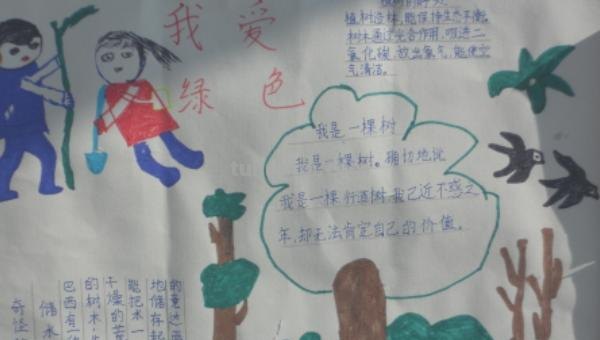 植树的好处
植树造林,能保持生态平衡。
树木通过光合作用,吸进二
氧化碳,放出氧气,能使空
气清洁。
我爱
绿色
我是一棵树
我是一棵树。确切地说
我是一棵行道树,我已近不惑之
年,却无法肯定自己的价值。
地储存起
能把水一
干燥的
的树木,生
巴西有
储水
奇怪